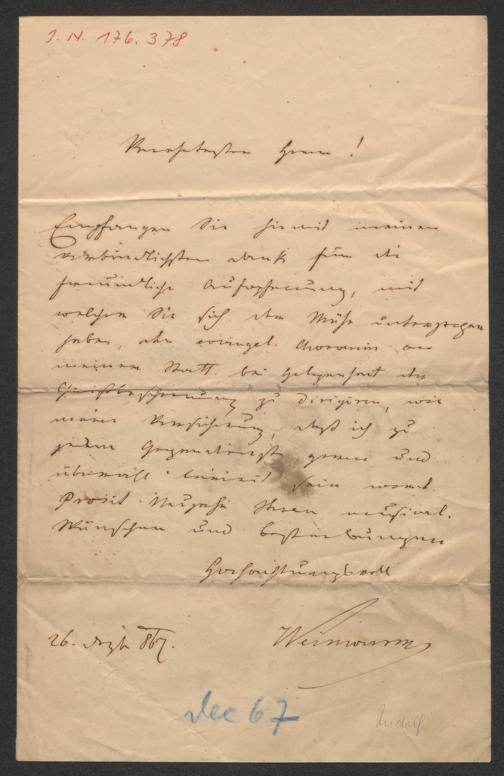 I. N. 176.378
Verehrtester Herr!
Empfangen Sie hiemit meinen
verbindlichsten Dank für die
freundliche Aufopferung, mit
welcher Sie sich der Mühe unterzogen
haben, den evangel. Chorverein an
meiner Statt bei Gelegenheit der
Christbescherung zu dirigiren, wie
meine Versicherung, daß ich zu
jedem Gegendienst gerne und
überall bereit sein werde.
Prosit Neujahr Ihren musical.
Wünschen und Bestrebungen
Hochachtungsvoll
26. Dezb 867. Weinwurm
Dec 67
Rudolf